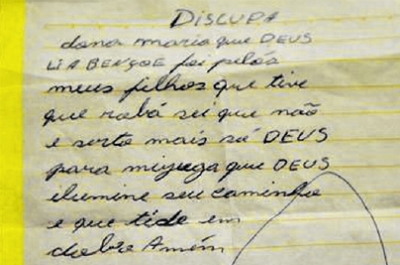 DISCUPA
dona maria que DEUS
LI A BENÇOE foi pelós
meus filhos que tive
que robá sei que não
e serto mais só DEUS
para mijuga que DEUS
elumine seu caminho
e que tide em
dobro Amém